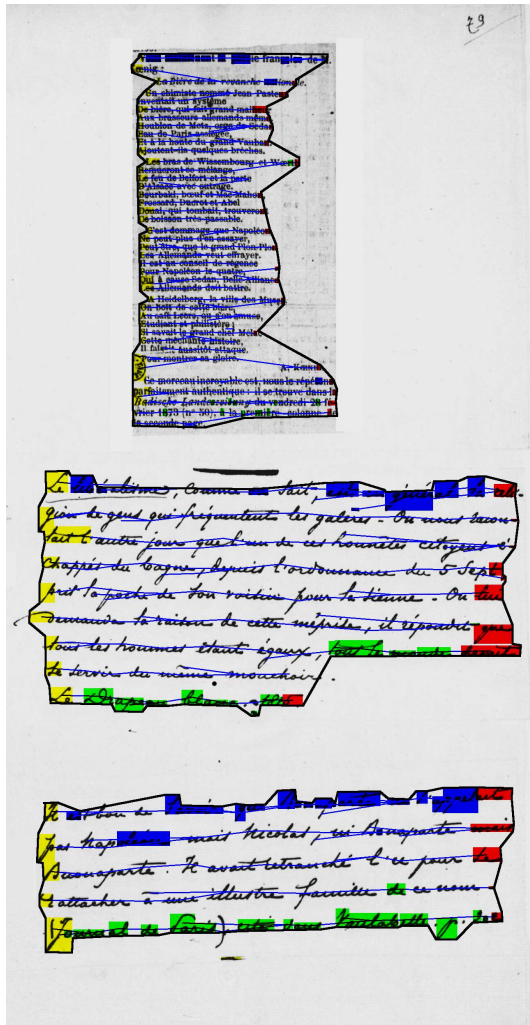 79
La Bière de la revanche
Un chimiste nommé Jean Pasteur
Inventait un système
De bière, qui fait grand
Aux brasseurs allemands même
Houblon de Metz, orge de Sedan
Eau de Paris assiégée,
Et à la honte du grand Vauban
Ajoutent-ils quelques brèches.
Les bras de Wissembourg et Wœrth
Remueront ce mélange,
Le feu de Belfort et la perte
D'Alsace avec outrage.
Bourbaki, bœuf et Mac-Mahon,
Frossard, Ducrot et Abel
Douai, qui tombait, trouveront
De boisson très-passable.
C'est dommage que Napoléon
Ne peut plus d'en essayer,
Peut-être, que le grand Plon-Plon
Les Allemands veut effrayer.
Il est au conseil de régence
Pour Napoléon le quatre,
Qui à cause Sedan, Belle-Alliance
Les Allemands doit battre.
A Heidelberg, la ville des Muses
On boit de cette bière,
Au café Leers, où s'amuse,
Etudiant et philistère;
Si savait le grand chef
Cette méchante histoire,
Il aussitôt attaque.
Pour montrer sa gloire.
Ce morceau incroyable est, nous le répétons
parfaitement authentique: il se trouve dans la
Badische Landeszeitung du vendredi 28 fé-
vrier 1873 (n° 50), à la première colonne de
la seconde page.
Le, comme on sait, est général
gion de gens qui fréquentent les galères. On nous racon-
tait l'autre jour que l'un de ces honnêtes citoyens é-
chappés du bagne, depuis l'ordonnance du 5 Sept
prit la poche de son voisin pour la sienne. On lui
demanda la raison de cette méprise, il répondit que
tous les hommes étant égaux, tout le monde devait
se servir du même mouchoir.
Le Drapeau blanc.
Il est bon de
pas Napoléon mais Nicolas, ni Bonaparte mais
Buonaparte. Il avait retranché l'u pour se
rattacher à une illustre famille de ce nom
(Journal de Paris), cité dans Vaulabelle. p.